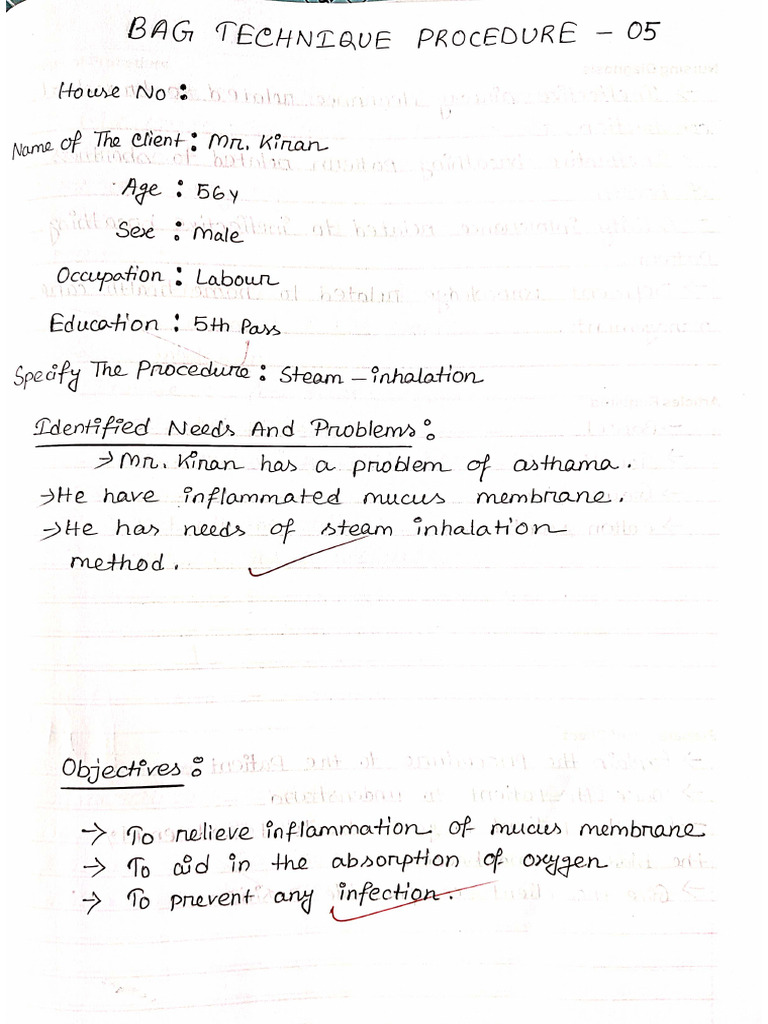 BAG TECHNIQUE PROCEDURE - 05
House No :
Name of The Client : Mr. Kiran
Age : 56y
Sex : Male
Occupation : Labour
Education : 5th Pass
Specify The Procedure : Steam - inhalation
Identified Needs And Problems :
→ Mr. Kiran has a problem of asthama.
→ He have inflammated mucus membrane.
→ He has needs of steam inhalation
method.
Objectives :
→ To relieve inflammation of mucus membrane
→ To aid in the absorption of oxygen
→ To prevent any infection.